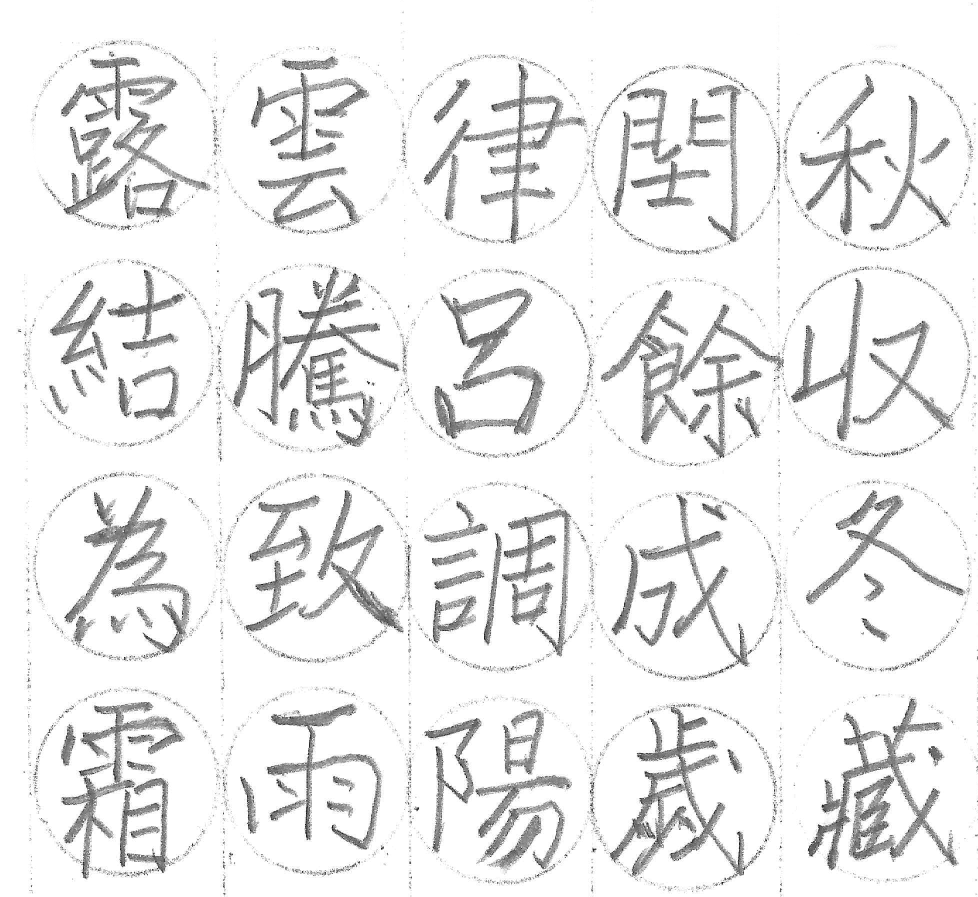 秋收冬藏
閏餘成歲
律呂調陽
雲騰致雨
露結為霜